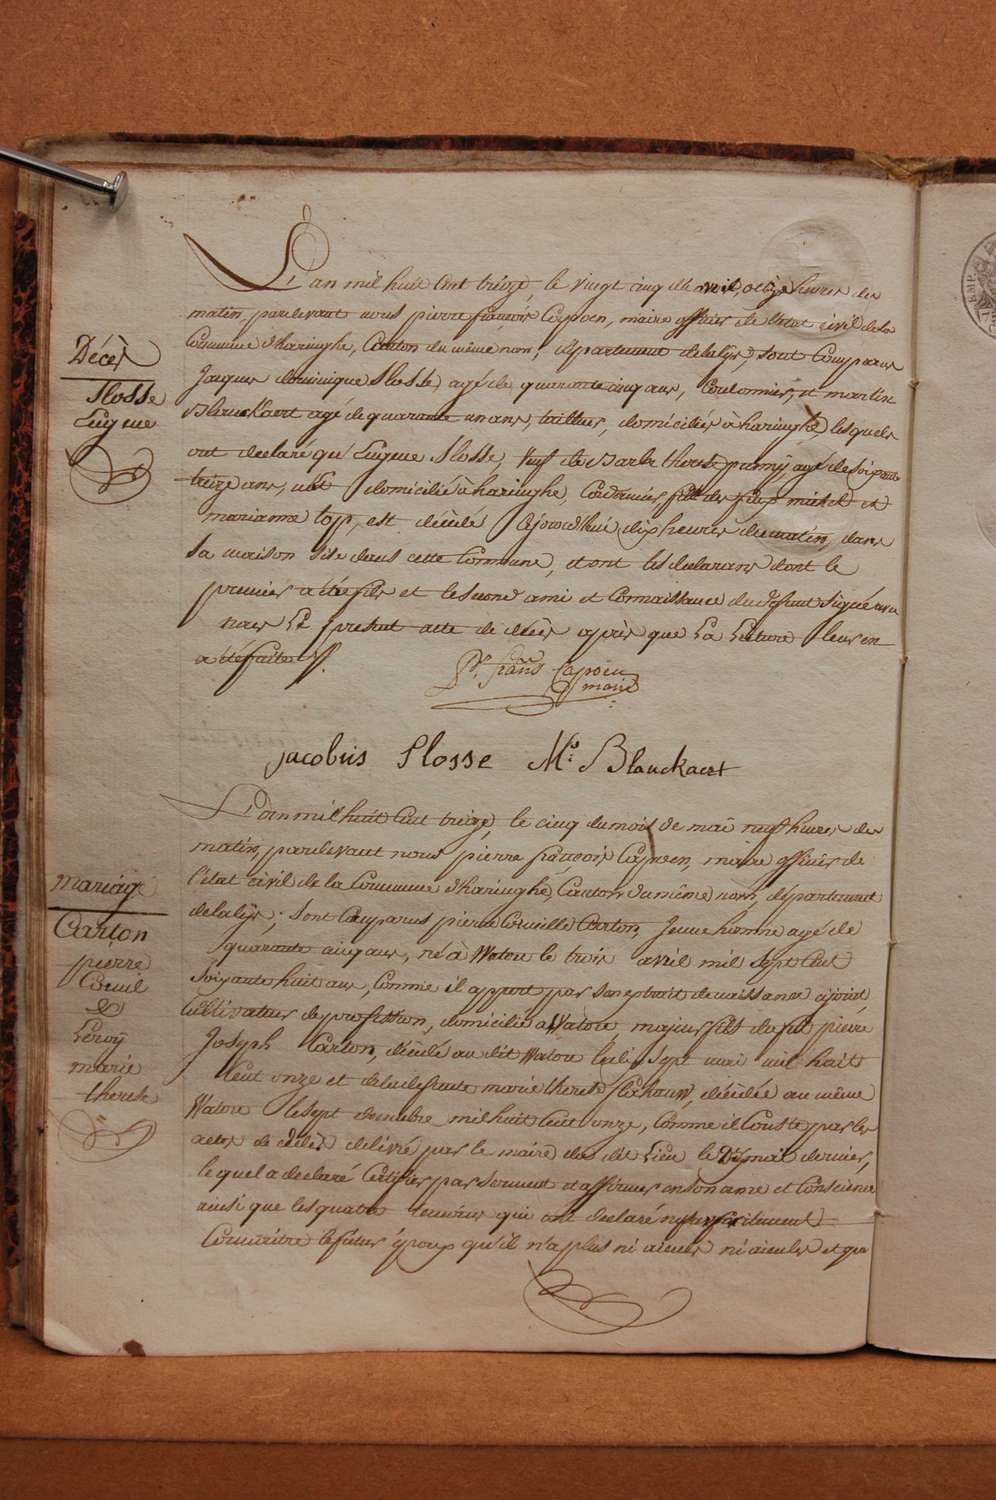 L'an mil huit Cent treize, le vingt cinq avril, onze heures du
matin, pardevant nous pierre françois Capoen, maire officier de l'état civil de la
Commune d'haringhe, Canton du même nom, département de la lÿs, sont Comparus
Décès
Jacques dominique Slosse, agé de quarante cinq ans, Cordonnier, et martin
Slosse
Eugene
Blanckaert agé de quarante un ans, tailleur, domiciliés à haringhe, lesquels
ont declaré que Eugene Slosse, veuf de Barbe therese agé de soixante
treize ans, domicilié à haringhe, Cordonnier fils de feus michel et
marianne top, est décédé Cejourd'hui dix heures du matin, dans
sa maison sise dans cette Commune, et ont les declarans dont le
premier a été fils et le second ami et Connaissance du defunt signé avec
nous Le present acte de décès après que La Lecture leur en
a été faite ./.
Pr. frans Capoen
maire
Jacobus Slosse Ms: Blanckaert
L'an mil huit Cent treize, le cinq du mois de mai neuf heures du
matin, pardevant nous pierre françois Capoen, maire officier de
mariage
l'état civil de la Commune d'haringhe, Canton du même nom, département
Carton
pierre
Cornil
&
Leroÿ
marie
therese
de la lÿs, sont Comparus pierre Corneille Carton, Jeune homme agé de
quarante cinq ans, né à Watou le trois avril mil sept Cent
soixante huit ans, Comme il appert par son extrait de naissance cÿjoint,
Cultivateur de profession, domicilié a Watou, majeur fils de feu pierre
Joseph Carton, décédé au dit Watou le dix sept mai mil huit
Cent onze et de la defunte marie therese décédée au même
Watou le sept decembre mil huit Cent onze, Comme il Conste par les
actes de décès délivré par le maire du dit Lieu le mai dernier,
lequel a declaré Certifier par serment et affirmer en son ame et Conscience
ainsi que les quatre temoins qui ont declaré
Connaitre le futur époux qu'il n'a plus ni aieuls ni aieules et que